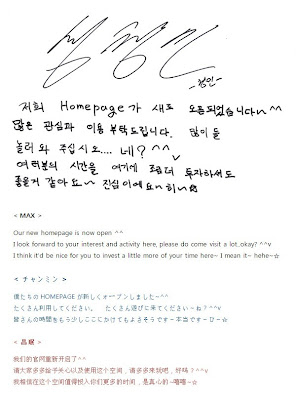 -창민-
저희 Homepage가 새로 오픈되었습니다~^^
많은 관심과 이용 부탁드립니다. 많이들
놀러와 주십시오.... 네? ^^v
여러분의 시간을 여기에 조금더 투자하셔도
좋을거 같아요~ 진심이에요~히~☆
< MAX >
Our new homepage is now open ^^
I look forward to your interest and activity here, please do come visit a lot..okay? ^^v
I think it'd be nice for you to invest a little more of your time here~ I mean it~ hehe~☆
< チャンミン >
僕たちのHOMEPAGEが新しくオープンしました~^^
たくさん利用してください。 たくさん遊びに来てください~ね？^^v
皆さんの時間をもう少しここにかけてもよさそうです~本当です~ひ~☆
< 昌珉 >
我们的官网重新开启了^^
请大家多多给予关心以及使用这个空间，请多多来玩吧，好吗？^^v
我相信在这个空间值得投入你们更多的时间，是真心的~嘻嘻~☆